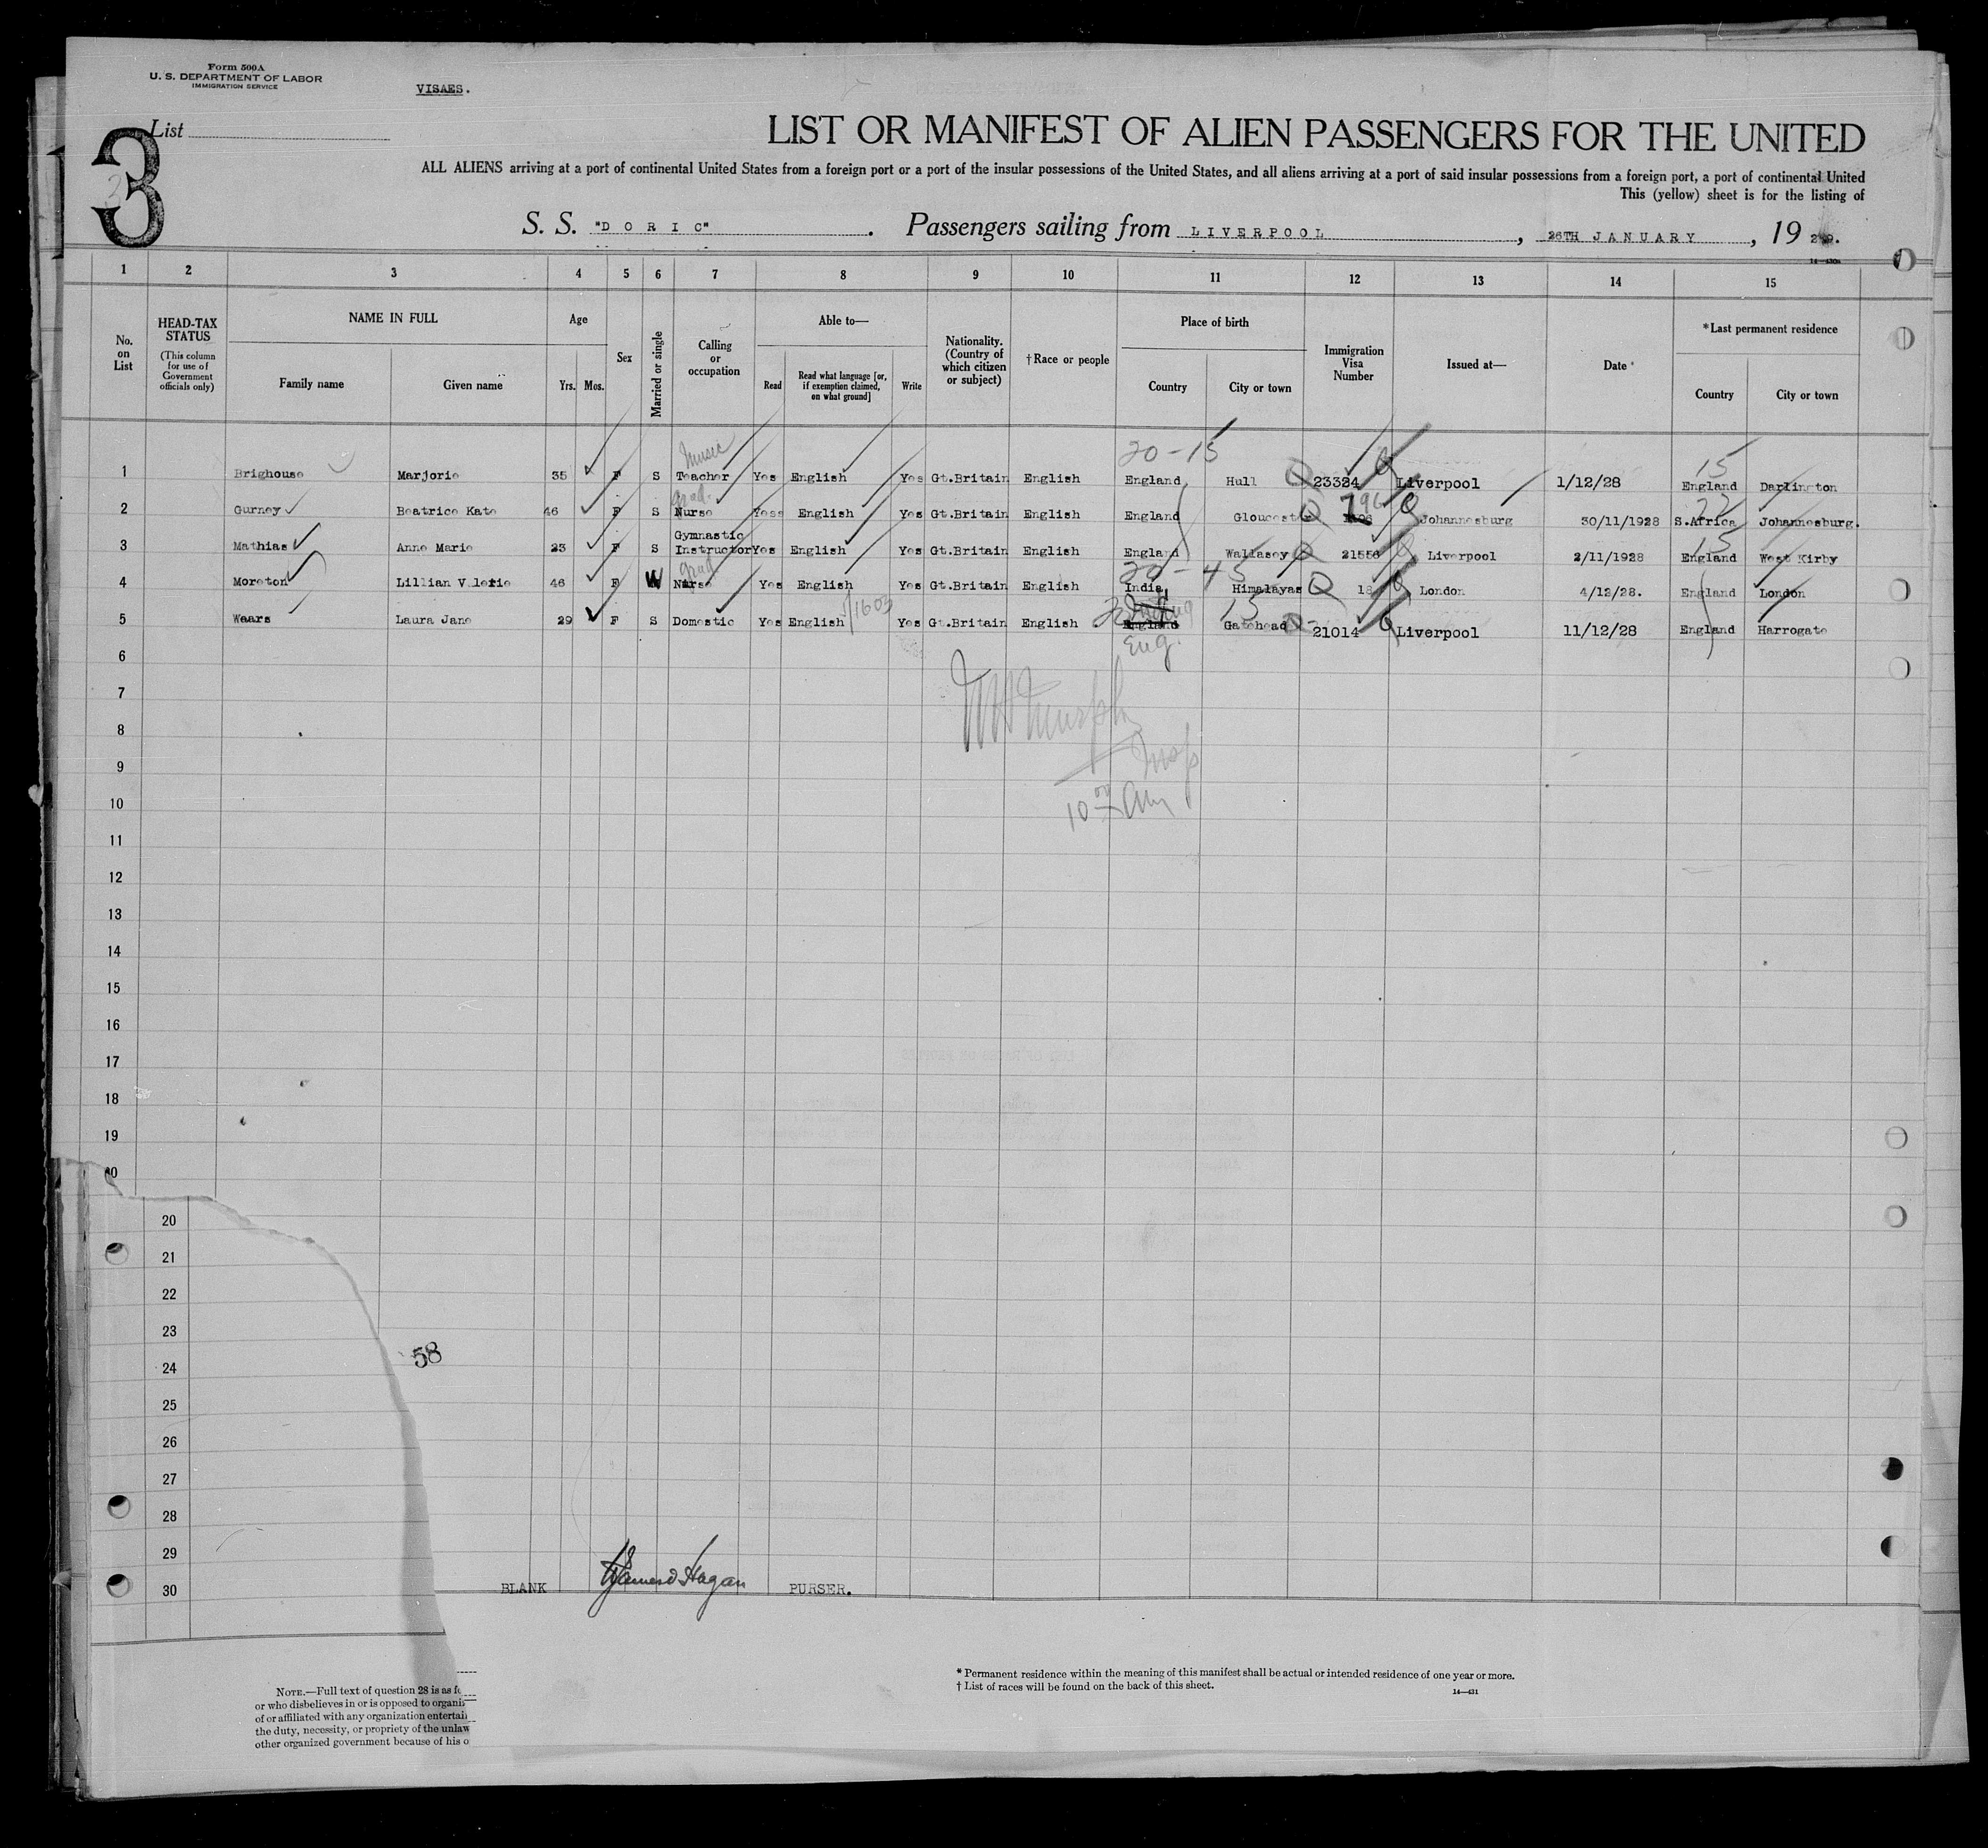 Form 500A
U. S. DEPARTMENT OF LABOR
IMMIGRATION SERVICE
VISAES.
3
List
LIST OR MANIFEST OF ALIEN PASSENGERS FOR THE UNITED
ALL ALIENS arriving at a port of continental United States from a foreign port or a port of the insular possessions of the United States, and all aliens arriving at a port of said insular possessions from a foreign port, a port of continental United
This (yellow) sheet is for the listing of
S. S. "DORIC". Passengers sailing from LIVERPOOL, 26TH JANUARY, 19
1 2 3 4 5 6 7 8 9 10 11 12 13 14 15
No. on List
HEAD-TAX STATUS
(This column for use of Government officials only)
NAME IN FULL
Family name Given name
Age
Yrs. Mos.
Sex
Married or single
Calling or occupation
Able to—
Read Read what language [or, if exemption claimed, on what ground] Write
Nationality. (Country of which citizen or subject)
†Race or people
Place of birth
Country City or town
Immigration Visa Number
Issued at—
Date
*Last permanent residence
Country City or town
music 20-15 15
1 Brighouse Marjorie 35 F S Teacher Yes English Yes Gt.Britain English England Hull 23324 Liverpool 1/12/28 England Darlington
grad. 22
2 Gurney Beatrice Kate 46 F S Nurse Yess English Yes Gt.Britain English England Gloucester Johannesburg 30/11/1928 S.Africa Johannesburg.
15
3 Mathias Anne Marie 23 F S Gymnastic Instructor Yes English Yes Gt.Britain English England Wallasey 21556 Liverpool 2/11/1928 England West Kirby
grad 20-45
4 Moreton Lillian Valerie 46 F W Nurse Yes English Yes Gt.Britain English India Himalayas London 4/12/28. England London
1603 15
5 Waars Laura Jane 29 F S Domestic Yes English Yes Gt.Britain English England Gatehead 21014 Liverpool 11/12/28 England Harrogate
Eng.
6
7
8
9
10
11
12
13
14
15
16
17
18
19
20
20
21
22
23
24
58
25
26
27
28
29
30 BLANK PURSER.
Murphy
Insp
10 00 Am
NOTE.—Full text of question 28 is as
or who disbelieves in or is opposed to
of or affiliated with any organization
the duty, necessity, or propriety of the
other organized government because of his
* Permanent residence within the meaning of this manifest shall be actual or intended residence of one year or more.
† List of races will be found on the back of this sheet.
14—431